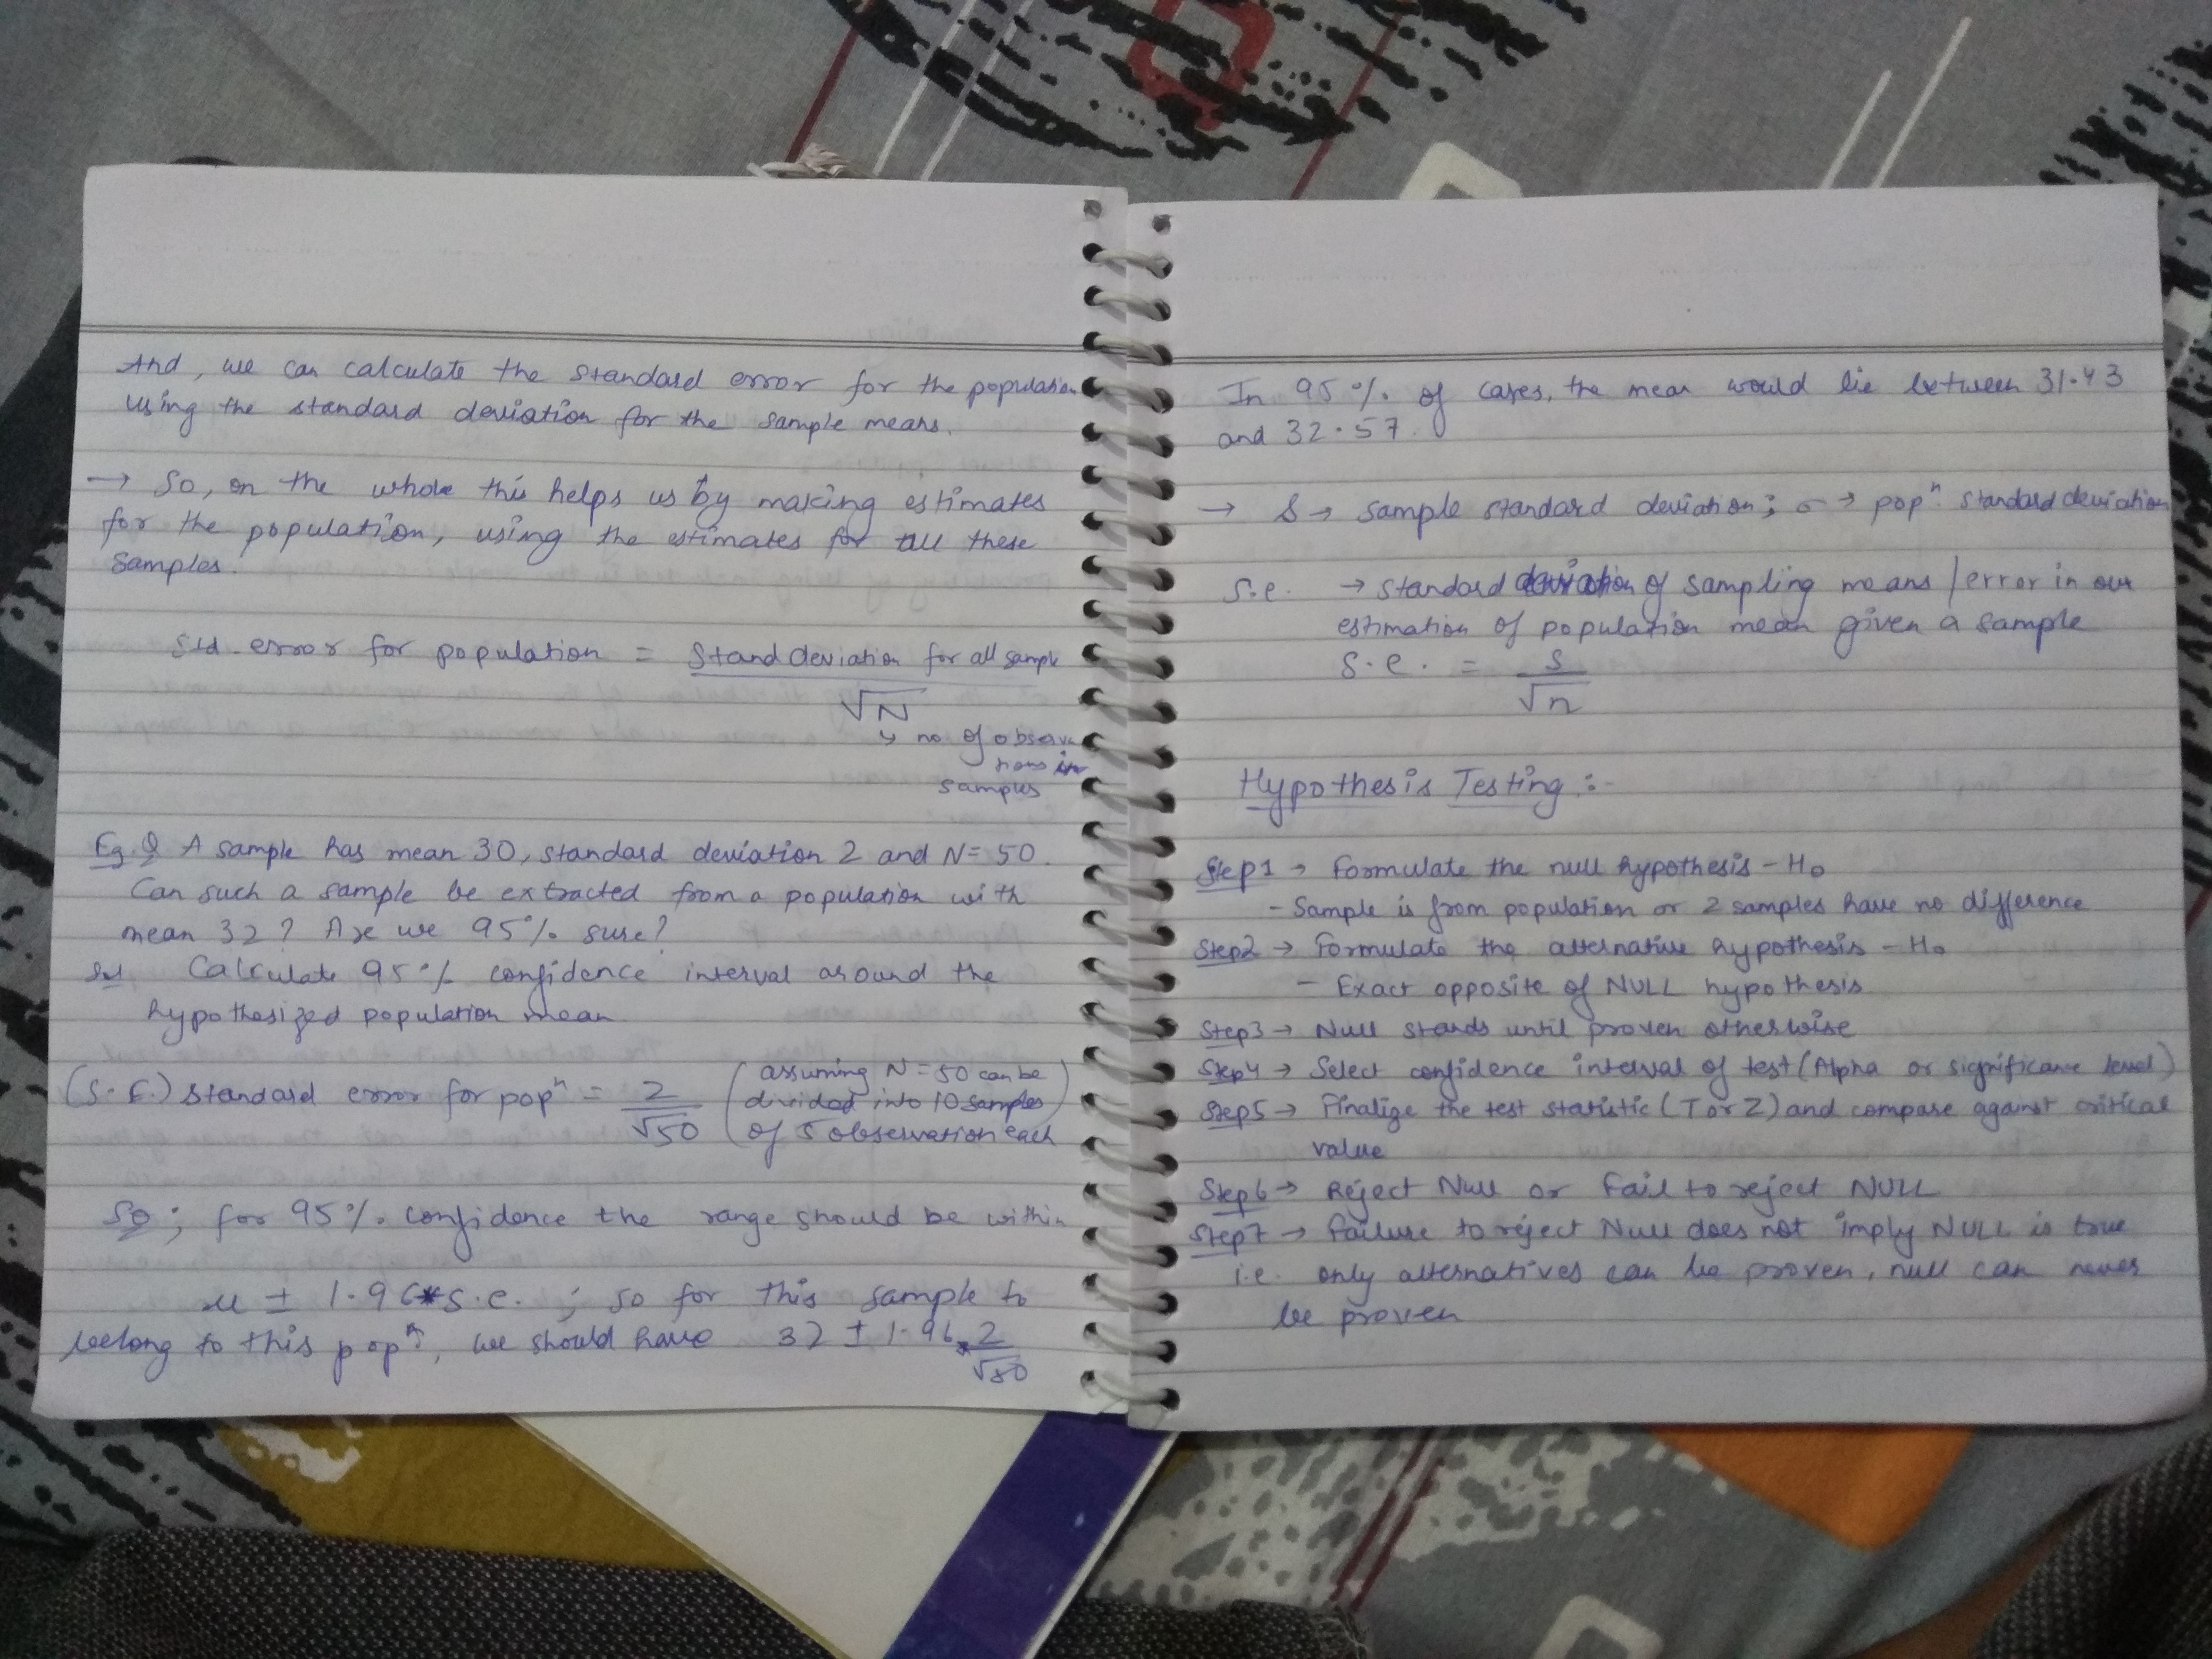 And, we can calculate the standard error for the population
using the standard deviation for the sample means.
→ So, on the whole this helps us by making estimates
for the population, using the estimates for all these
samples.
Std. error for population = Stand deviation for all sample
√N
↳ no of observa
tions in
samples
Eg. Q A sample has mean 30, standard deviation 2 and N=50.
Can such a sample be extracted from a population with
mean 32? Are we 95% sure?
Sol Calculate 95% confidence interval around the
hypothesized population mean
(S.E.) Standard error for popⁿ = 2/√50 (assuming N=50 can be
divided into 10 samples
of 5 observation each
So; for 95% confidence the range should be within
μ ± 1.96*s.e. ; so for this sample to
belong to this popⁿ, we should have 32 ± 1.96*2/√50
In 95% of cases, the mean would lie between 31.43
and 32.57.
→ S → sample standard deviation; σ → popⁿ standard deviation
S.e. → standard deviation of sampling means / error in our
estimation of population mean given a sample
S.e. = S/√n
Hypothesis Testing :-
Step1 → Formulate the null hypothesis - H₀
- Sample is from population or 2 samples have no difference
Step2 → Formulate the alternative hypothesis - H₀
- Exact opposite of NULL hypothesis
Step3 → Null stands until proven otherwise
Step4 → Select confidence interval of test (Alpha or significance level)
Step5 → Finalize the test statistic (T or Z) and compare against critical
value
Step6 → Reject Null or Fail to reject NULL
Step7 → Failure to reject Null does not imply NULL is true
i.e. only alternatives can be proven, null can never
be proven